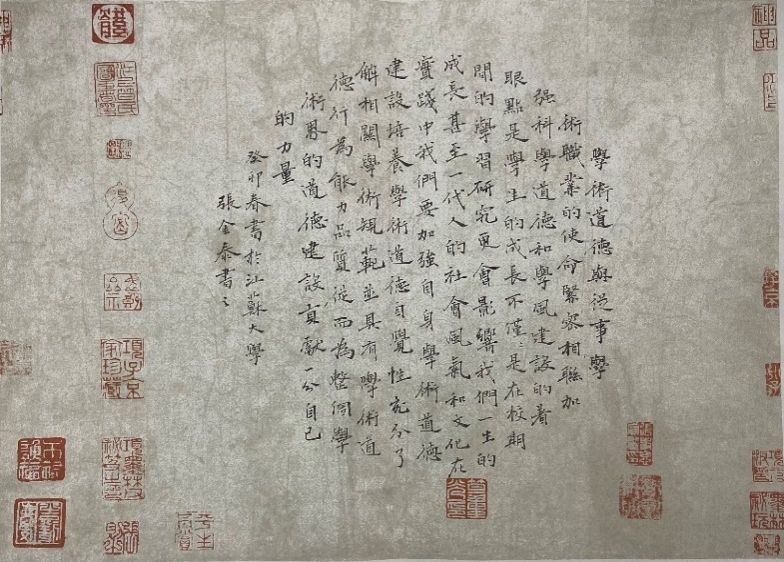 學術道德與從事學
術職業的使命緊密相聯加
强科學道德和學風建設的着
眼點是學生的成長不僅〻是在校期
間的學習研究更會影響我們一生的
成長甚至一代人的社會風氣和文化在
實踐中我們要加強自身學術道德
建設培養學術道德自覺性充分了
解相關學術規範並具有學術道
德行為能力品質從而為整個學
術界的道德建設貢獻一分自己
的力量
癸卯春書於江蘇大學
張金泰書〻
項子京家珍藏
平生真賞